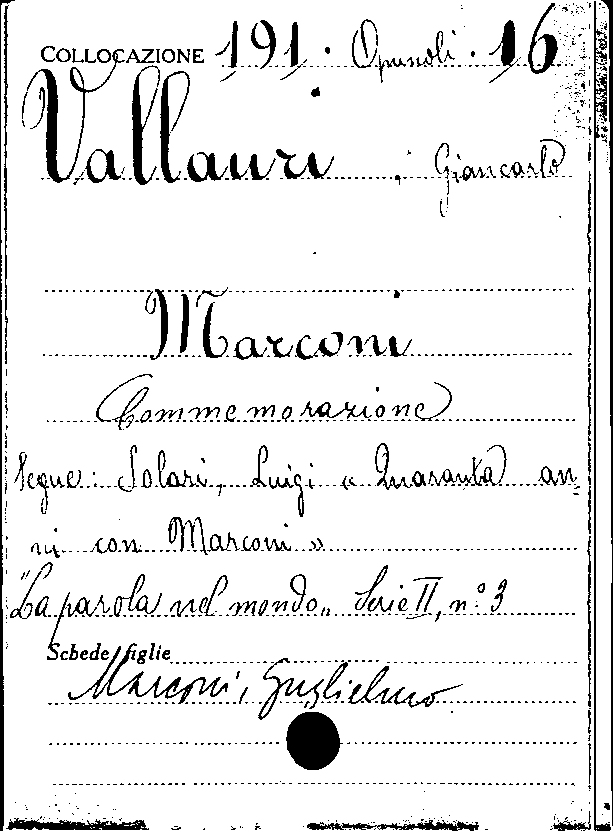 COLLOCAZIONE 191. Opuscoli. 16
Vallauri, Giancarlo
Marconi
Commemorazione
Segue: Solari, Luigi « Quaranta an-
ni con Marconi »
"La parola nel mondo„ Serie II, n.° 3
Schede figlie
Marconi, Guglielmo